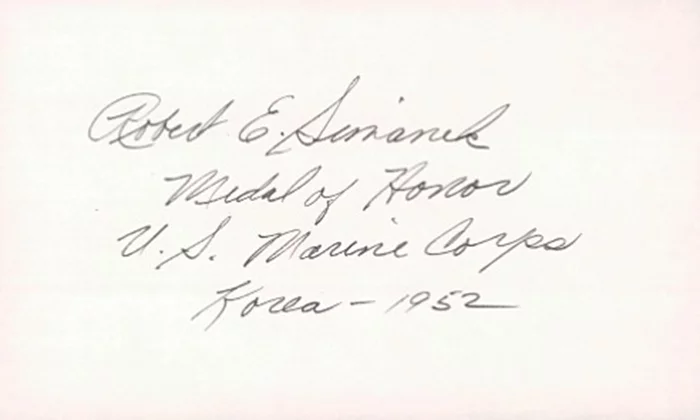 Robert E. Simanek
Medal of Honor
U.S. Marine Corps
Korea - 1952